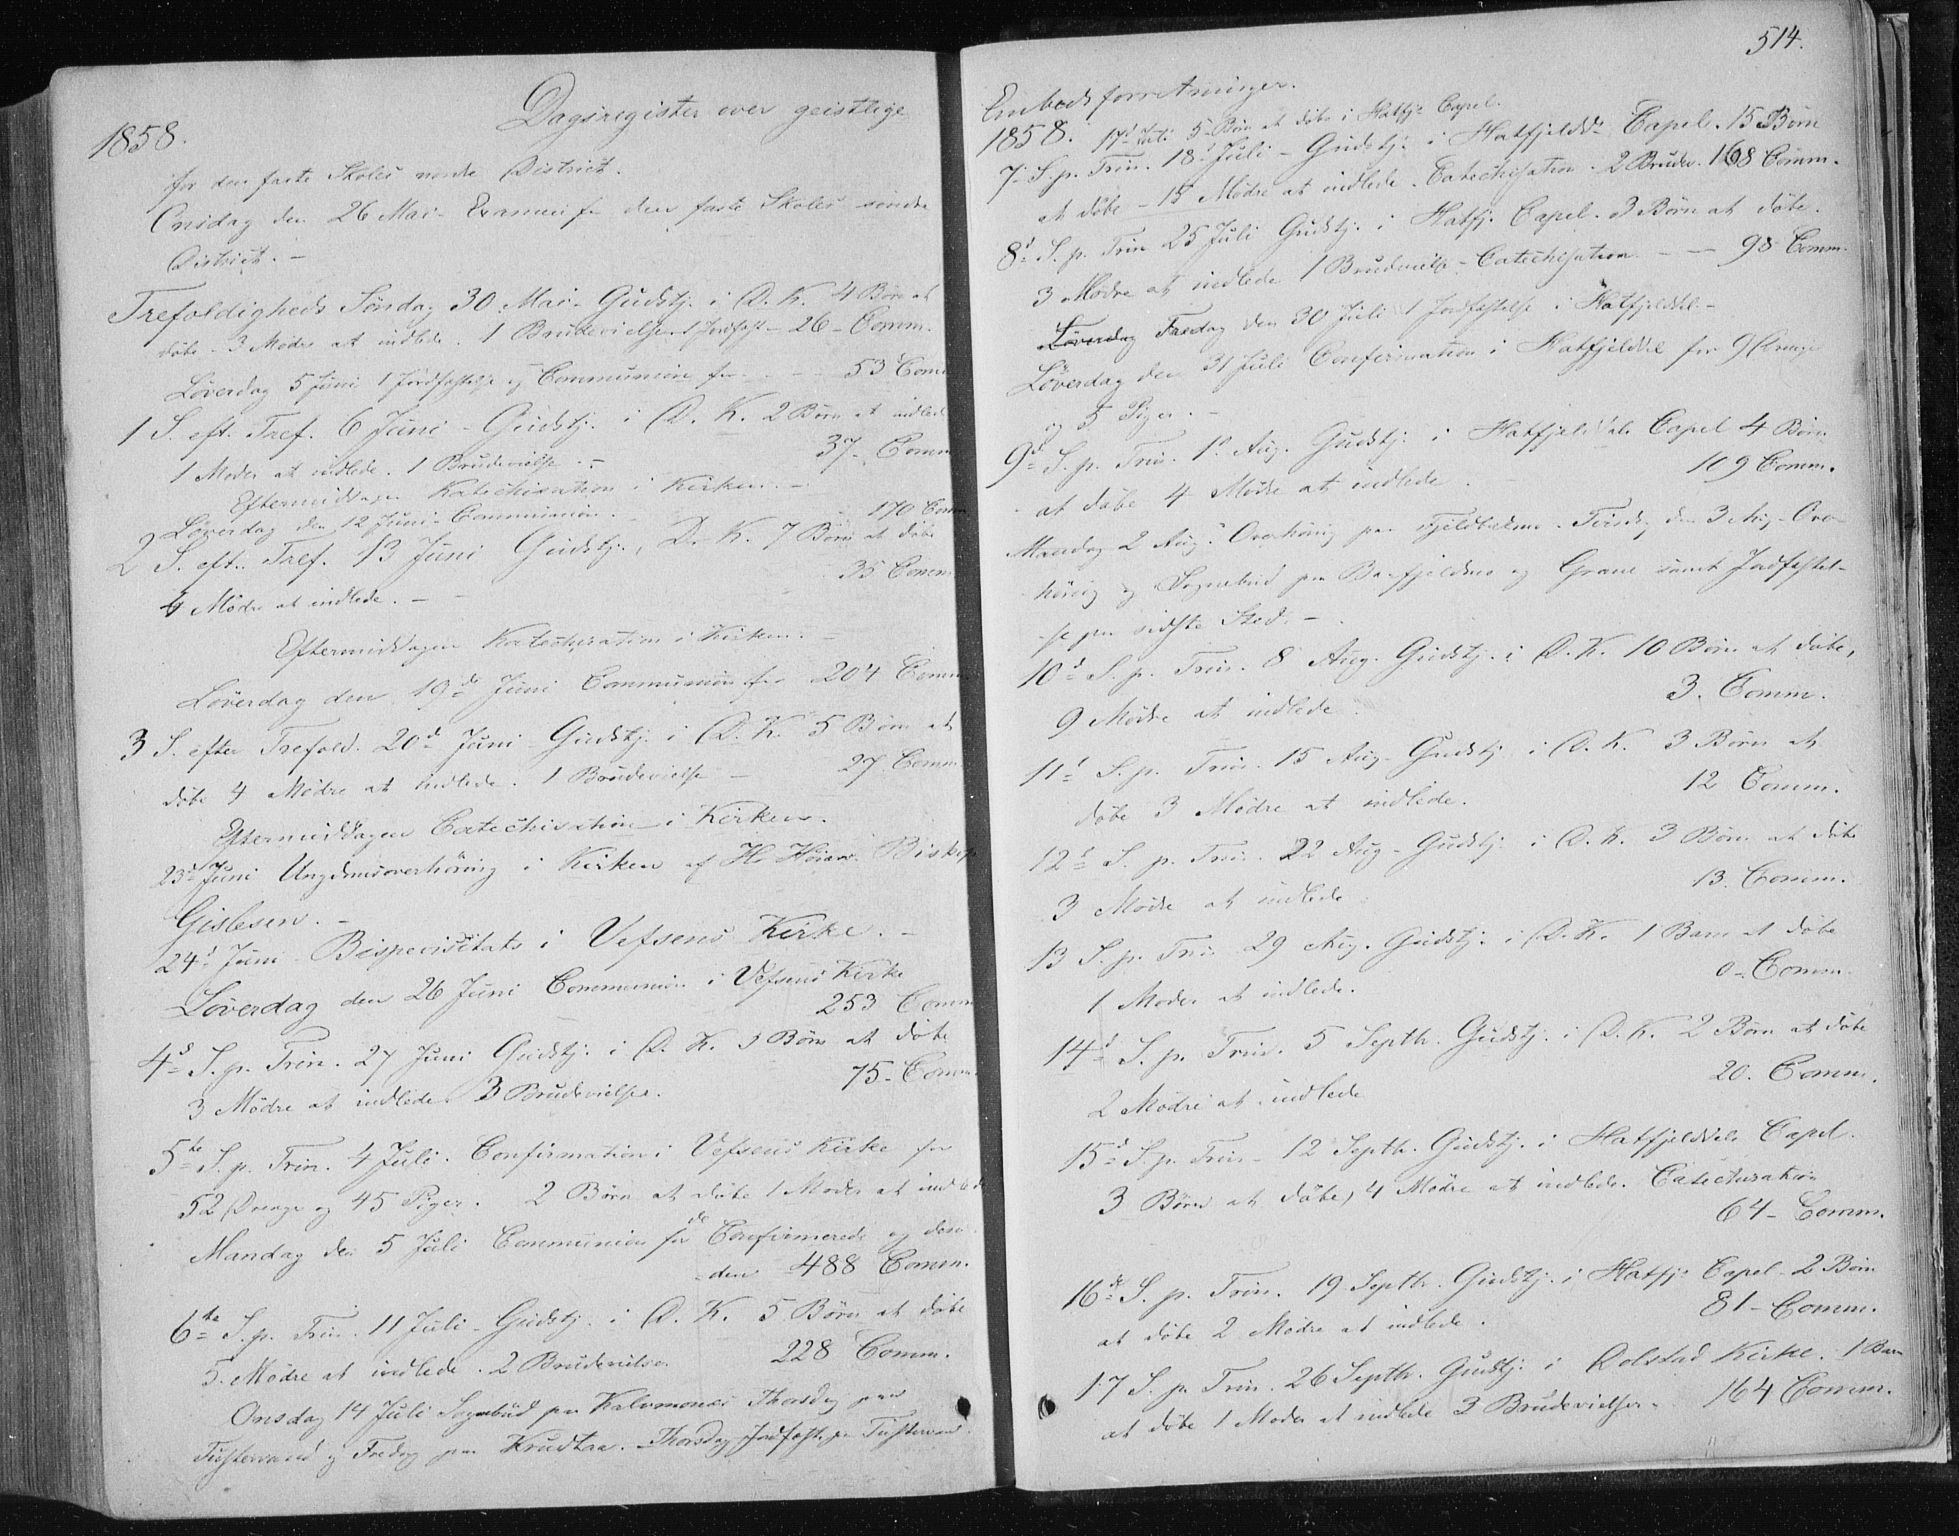 Dagsregister over geistlige
1858.
for den faste Skoles nordre District.
Onsdag den 26 Mai - Examen f. den faste Skoles søndre
District. -
Trefoldigheds Søndag 30 Mai - Gudstj. i D. K. 4 Børn at
døbe - 3 Mødre at indlede. 1 Brudevielse. 1 Jordfæst - 26 - Comm.
Løverdag 5 Juni 1 Jordfæstelse og Communion for - - - 53 Comm
1 S. eft. Tref. 6 Juni - Gudstj. i D. K. 2 Børn at indlede
1 Moder at indlede. 1 Brudevielse. - 37 - Comm
Eftermiddagen Katechisation i Kirken. -
Løverdag den 12 Juni - Communion. 170 Comm
2 S. eft. Tref. 13 Juni Gudstj. D. K. 7 Børn at døbe
4 Mødre at indlede. - 35 Comm
Eftermiddagen Katechisation i Kirken. -
Løverdag den 19de Juni Communion for 204 Comm
3 S. efter Trefold. 20d Juni - Gudstj. i D. K. 5 Børn at
døbe 4 Mødre at indlede. 1 Brudevielse - 27. Comm
Eftermiddagen Catechisation i Kirken.
23d Juni Ungdomsoverhöring i Kirken af Hr. Biskop
Gislesen. -
24d Juni - Bispevisitats i Vefsens Kirke. -
Løverdag den 26 Juni Communion i Vefsens Kirke
253 Comm
4d S. p. Trin. 27 Juni Gudstj. i D. K. Børn at døbe
3 Mødre at indlede 3 Brudevielser. 75 - Comm
5te S. p. Trin. 4 Juli. Confirmation i Vefsens Kirke for
52 Drenge og 45 Piger. 2 Børn at døbe 1 Moder at indlede
Mandag den 5 Juli Communion for de Confirmerede og
488 Comm.
6te S. p. Trin. 11 Juli - Gudstj. i D. K. 5 Børn at døbe
5. Mødre at indlede. 2 Brudevielse. 228 Comm.
Onsdag 14 Juli Sognebud paa Thorsdag paa
Tustervand og Fredag paa Krudtaa. Thorsdag Jordfæst. paa Tustervand.
514.
Embedsforretninger.
1858. 17d Juli 5 Børn at døbe i Hatfj. Capel.
7. S. p. Trin. 18d Juli - Gudstj. i Hatfjeldd. Capel. 15 Børn
at døbe - 15 Mødre at indlede. Catechisation - 2 Brudev. 168 Comm.
8d S. p. Trin 25 Juli Gudstj. i Hatfj. Capel. 3 Børn at døbe.
3 Mødre at indlede 1 Brudevielse - Catechisation - - 98 Comm.
Løverdag Fredag den 30 Juli 1 Jordfæstelse i Hatfjeldd. -
Løverdag den 31 Juli Confirmation i Hatfjelddal for 9 Drenge
og 5 Piger. -
9d S. p. Trin. 1. Aug. Gudstj. i Hatfjelddals Capel 4 Børn
at døbe 4 Mødre at indlede. 109 Comm.
Mandag 2 Aug. Overhöring paa - Tirsdag den 3 Aug - Over-
höring og Sognebud paa og Grane samt Jordfæstel-
se paa sidste Sted. -
10d S. p. Trin. 8 Aug. Gudstj. i D. K. 10 Børn at døbe,
9 Mødre at indlede. 3. Comm.
11d S. p. Trin. 15 Aug. Gudstj. i D. K. 3 Børn at
døbe 3 Mødre at indlede. 12 Comm.
12d S. p. Trin. 22 Aug - Gudstj. i D. K. 3 Børn at døbe
3 Mødre at indlede. 13. Comm.
13 S. p. Trin. 29 Aug. Gudstj. i D. K. 1 Barn at døbe
1 Moder at indlede. 0 - Comm.
14d S. p. Trin. 5 Septbr. Gudstj. i D. K. 2 Børn at døbe
2 Mødre at indlede 20. Comm.
15d S. p. Trin - 12 Septbr. Gudstj. i Hatfjelddals Capel.
3 Børn at døbe, 4 Mødre at indlede. Catechisation
64 - Comm.
16de S. p. Trin. 19 Septbr. Gudstj. i Hatfj. Capel - 2 Børn
at døbe 2 Mødre at indlede. 81 - Comm.
17 S. p. Trin. 26 Septbr. Gudstj. i Dolstad Kirke. 1 Barn
at døbe 1 Moder at indlede 3 Brudevielser. 164 Comm.